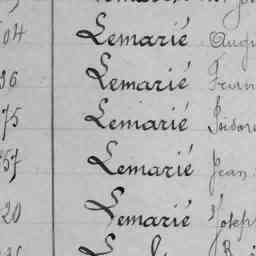 04 Lemarié Augu
96 Lemarié Fran
75 Lemarié Isidore
757 Lemarié Jean
20 Lemarié Joseph